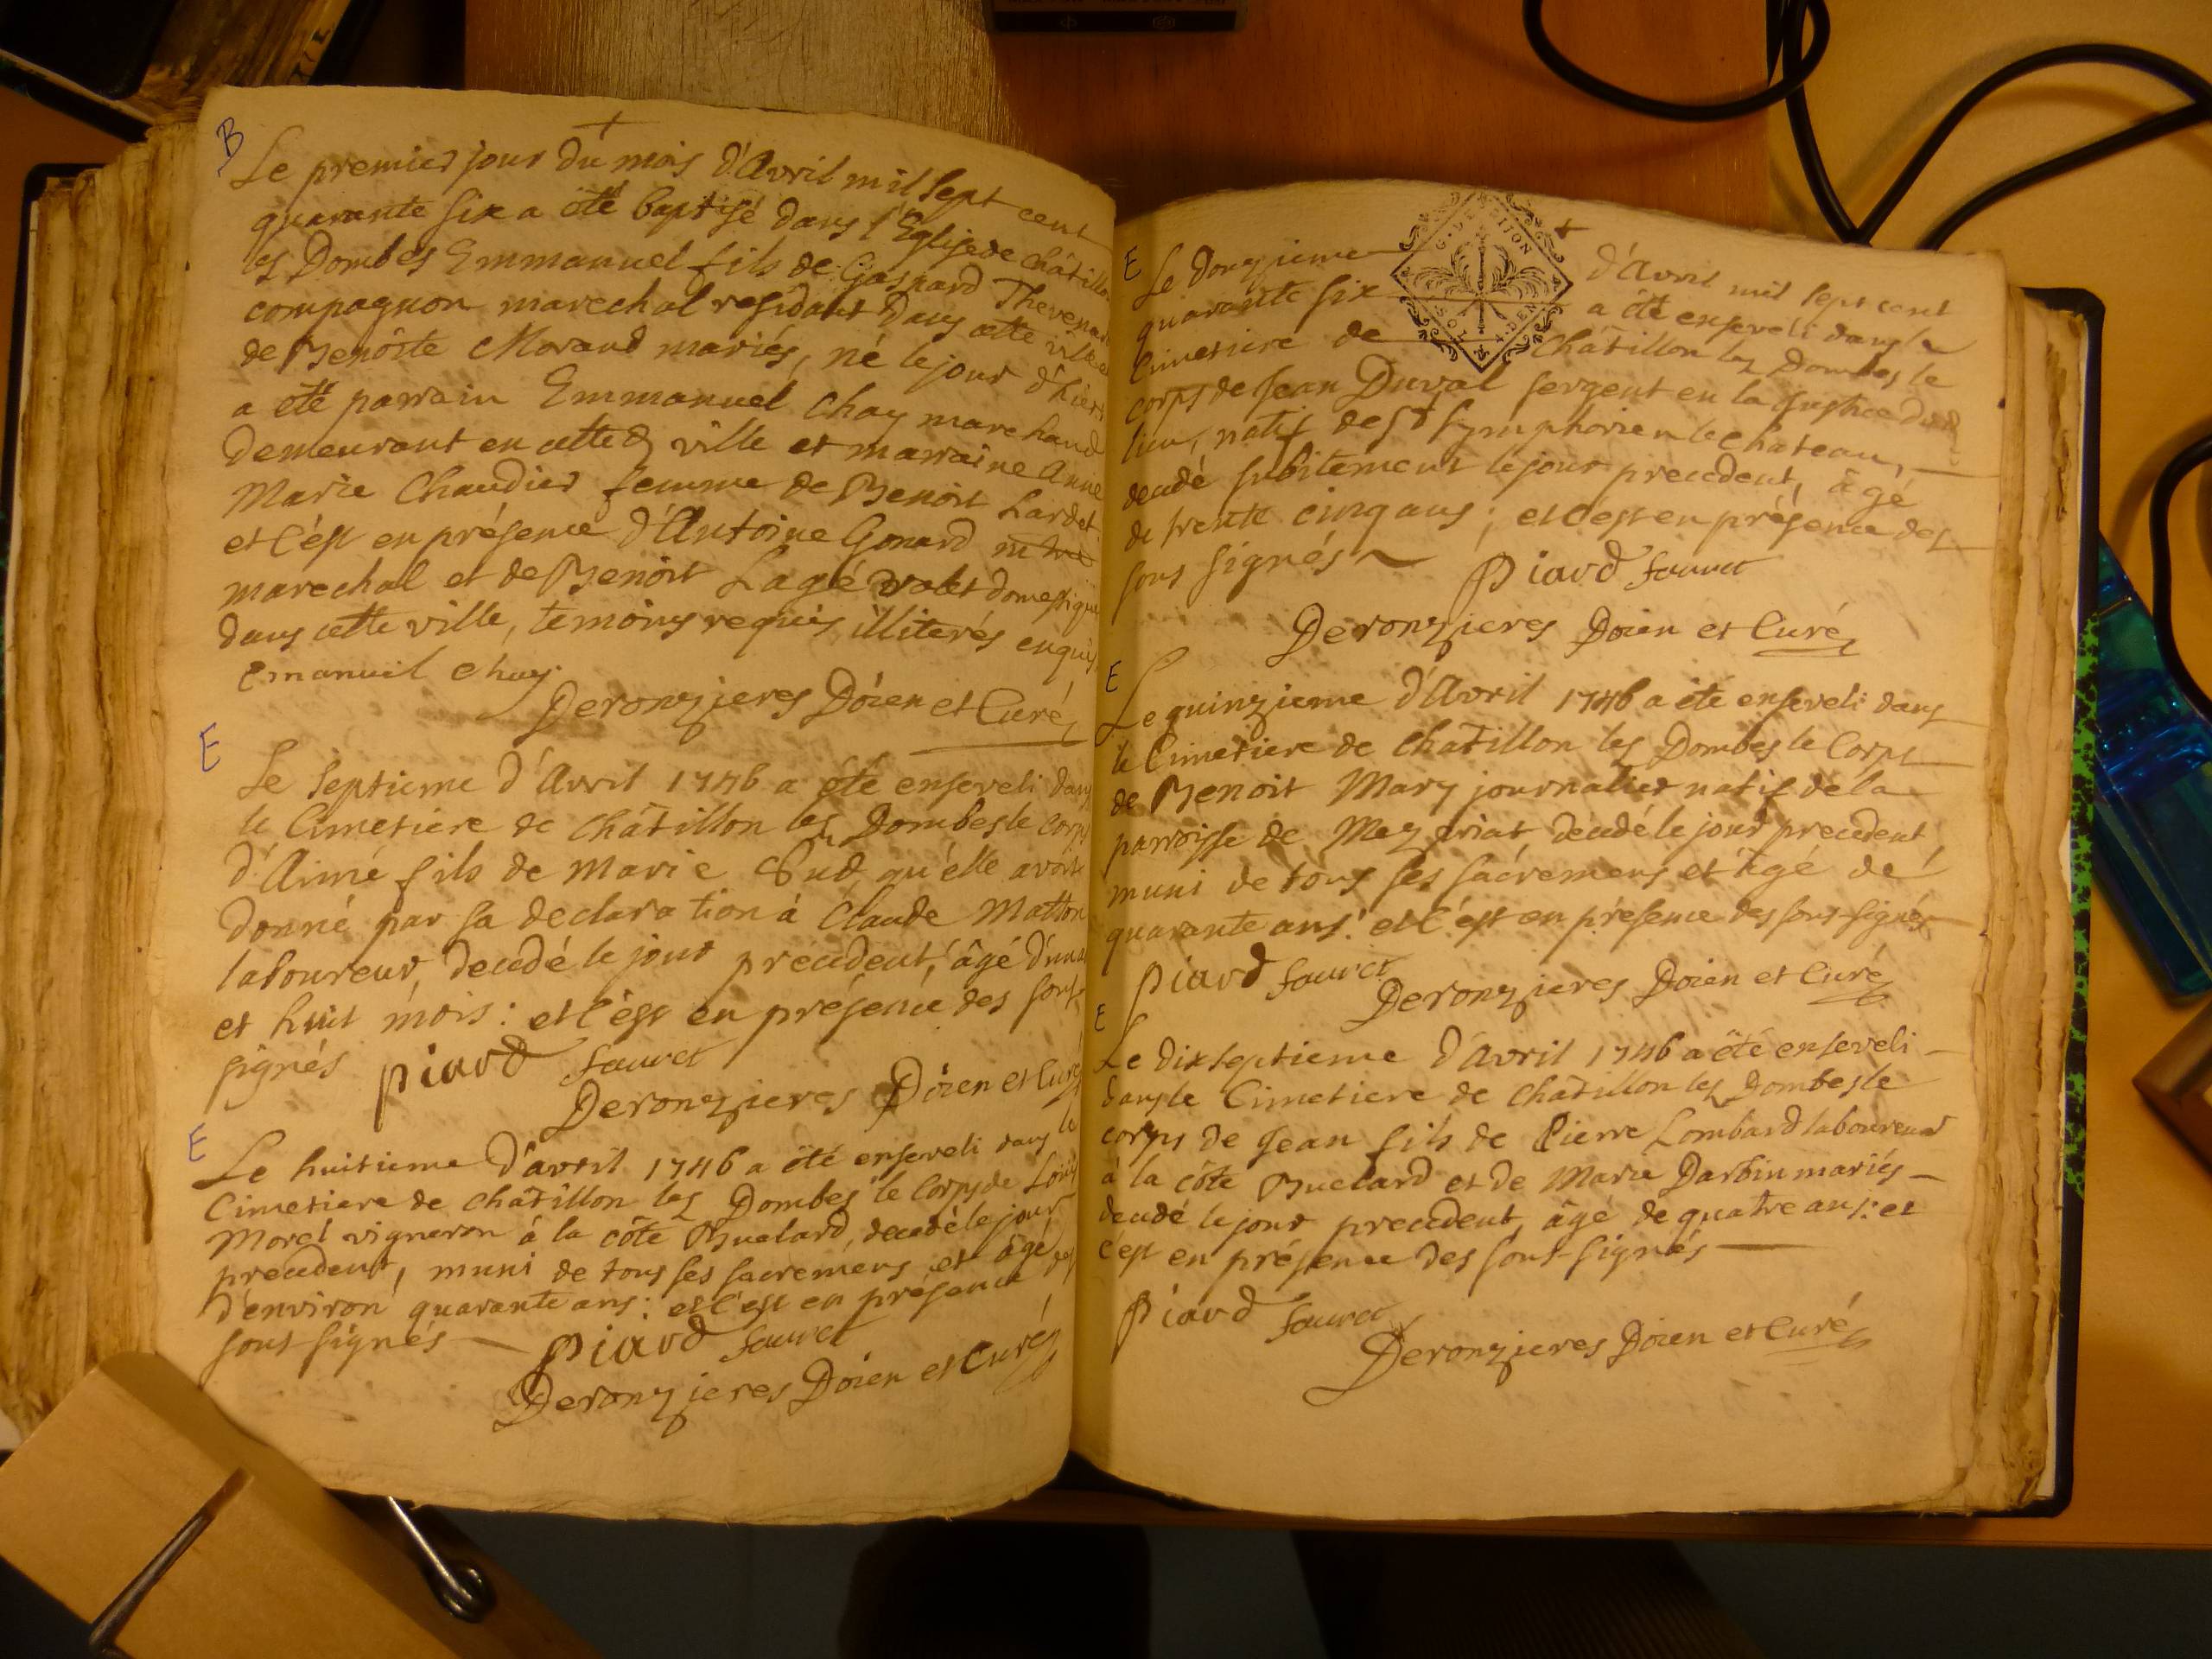 B
Le premier jour du mois d'Avril mil sept cent
quarante six a été baptisé dans l'Eglise de châtillon
les Dombes Emmanuel fils de Gaspard Thevenard
compagnon marechal residant dans cette ville et
de Benoîte Morand mariés, né le jour d'hier
a été parrain Emmanuel Chay marchand
demeurant en cette ville et marraine Anne
Marie Chaudier femme de Benoit Lardet
et c'est en présence d'Antoine Gonard
marechal et de Benoit Lagé valet domestique
dans cette ville, temoins requis, illiterés enquis
Emanuel Chay
Deronzieres Doien et Curé
E
Le septieme d'Avril 1746 a été enseveli dans
le Cimetiere de châtillon les Dombes le corps
d'Aimé fils de Marie Sud, qu'elle avoit
donné par sa declaration à Claude Matton
laboureur, decedé le jour precedent, âgé d'un a
et huit mois : et c'est en présence des sous
signés Piard fauret
Deronzieres Doien et Curé
E
Le huitieme d'avril 1746 a été enseveli dans le
Cimetiere de châtillon les Dombes le Corps de Louis
Morel vigneron à la côte Buelard, decedé le jour
precedent, muni de tous ses sacremens et âgé
d'environ quarante ans : et c'est en présence des
sous signés Piard fauret
Deronzieres Doien et Curé
E
Le douzieme d'Avril mil sept cent
G. DE DIJON
quarante six a été enseveli dans le
Cimetiere de Châtillon les Dombes le
corps de Jean Duval sergent en la Justice dud
lieu, natif de St Symphorien le chateau,
decedé subitement le jour precedent, âgé
de trente cinq ans ; et c'est en présence des
sous signés Piard fauret
Deronzieres Doien et Curé
E
Le quinzieme d'Avril 1746 a été enseveli dans
le Cimetiere de châtillon les Dombes le Corps
de Benoit Mary journalier natif de la
parroisse de Mezeriat, decedé le jour precedent,
muni de tous ses sacremens et âgé de
quarante ans : et c'est en présence des sous-signés
Piard fauret
Deronzieres Doien et Curé
E
Le dixseptieme d'Avril 1746 a été enseveli
dans le Cimetiere de châtillon les Dombes le
corps de Jean fils de Pierre Lombard laboureur
à la côte Buelard et de Marie Darbin mariés
decedé le jour precedent, âgé de quatre ans : et
c'est en présence des sous-signés
Piard fauret
Deronzieres Doien et Curé